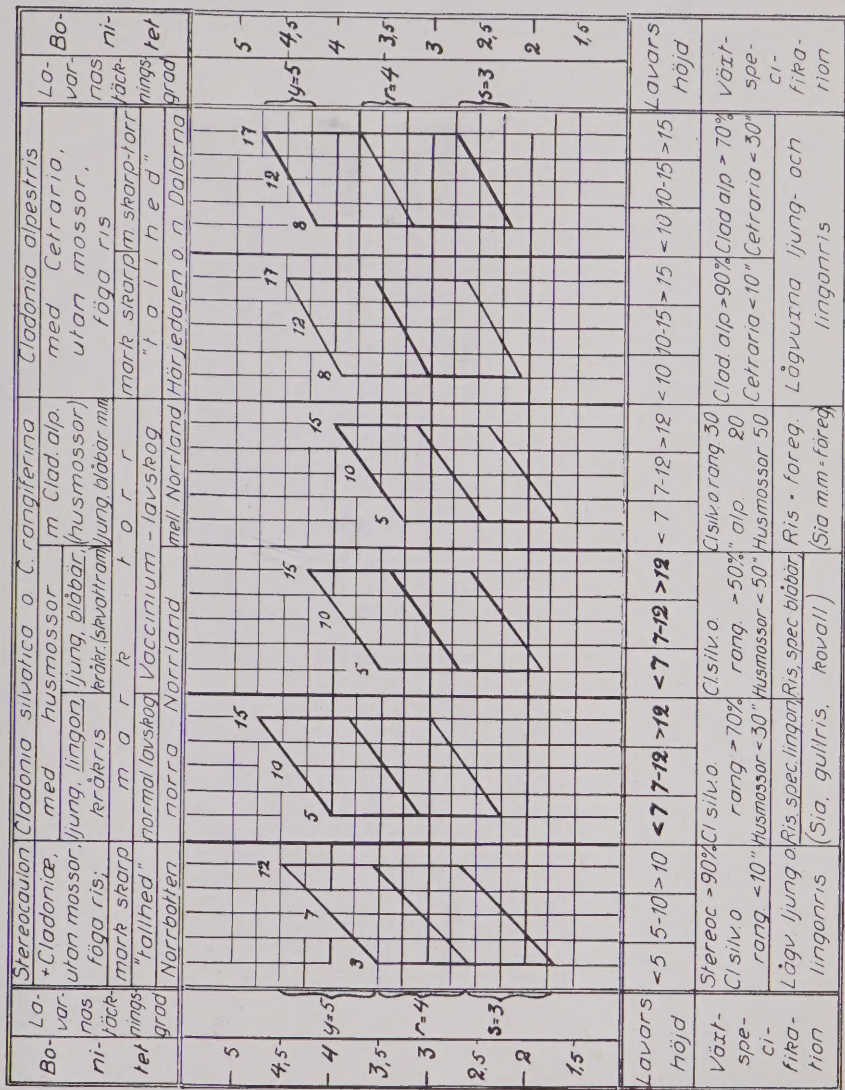 Bo-
ni-
tet
La-
var-
nas
täck-
nings
grad
Stereocaulon
+Cladoniæ,
utan mossor,
föga ris;
mark skarp
"tallhed"
Norrbotten
Cladonia silvatica o C. rangiferina
med husmossor
m Clad. alp.
(husmossor)
ljung, lingon,
kråkris
ljung, blåbär,
kråkr. (skvattram)
ljung, blåbär mm
mark torr
normal lavskog
Vaccinium - lavskog
norra Norrland
mell Norrland
Cladonia alpestris
med Cetraria,
utan mossor,
föga ris
mark skarp
m. skarp-torr
"tallhed"
Härjedalen o. n. Dalarna
La-
var-
nas
täck-
nings
grad
Bo-
ni-
tet
5
4,5
4
3,5
3
2,5
2
1,5
y=5
r=4
s=3
3 7 12
5 10 15
5 10 15
5 10 15
8 12 17
8 12 17
y=5
r=4
s=3
5
4,5
4
3,5
3
2,5
2
1,5
Lavars
höjd
<5 5-10 >10
<7 7-12 >12
<7 7-12 >12
<7 7-12 >12
<10 10-15 >15
<10 10-15 >15
Lavars
höjd
Växt-
spe-
ci-
fika-
tion
Stereoc >90%
Cl silv.o
rang. <10"
Cl silv.o.
rang >70%
Husmossor <30"
Cl.silv.o.
rang. >50%
Husmossor <50"
Cl silv.o rang. 30
" alp. 20
Husmossor 50
Clad. alp >90%
Cetraria <10"
Clad alp >70%
Cetraria <30"
Växt-
spe-
ci-
fika-
tion
Lågv. ljung o
lingonris
Ris, spec. lingon
Ris, spec blåbär,
(Sia, gullris, kovall)
Ris = foreg.
(Sia mm = föreg)
Lågvuxna ljung- och
lingonris